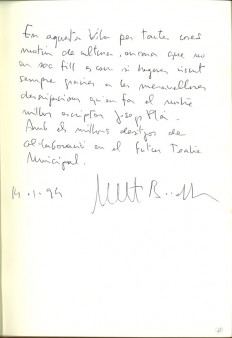 En aquesta Vila per tantes coses
motiu de cultura, encara que no
en soc fill es com si hagues viscut
sempre gracies a les meravelloses
descripcions que en fa el nostre
millor escriptor Josep Pla.
Amb els millors desitjos de
col·laboració en el futur Teatre
Municipal.
14.1.94